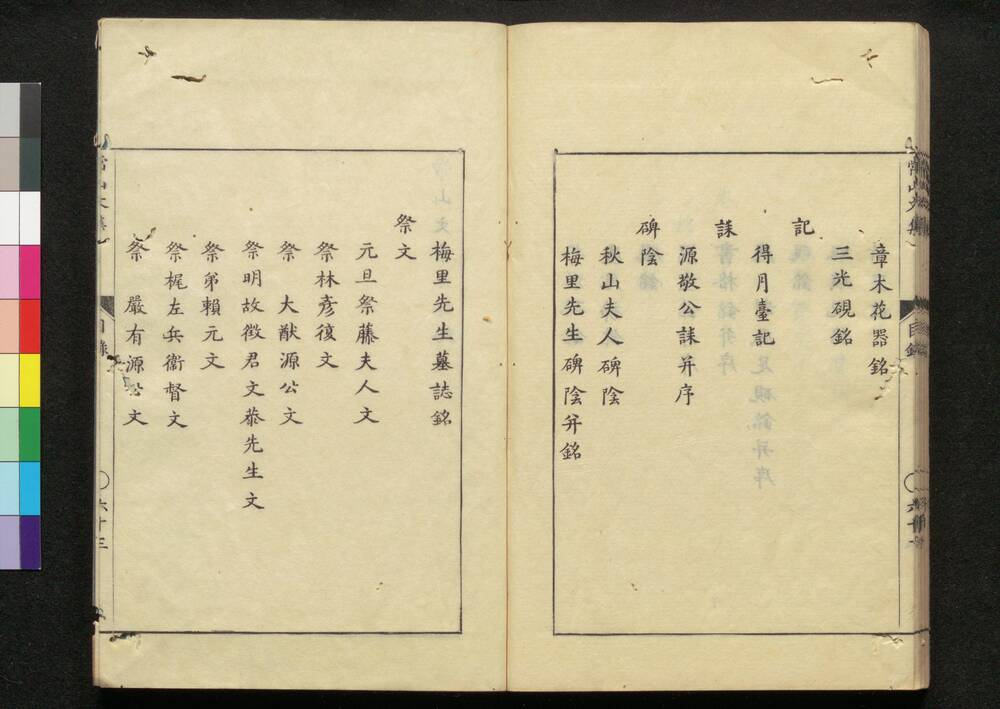 章末花器銘
三光硯銘
記
得月臺記
誄
源敬公誄并序
碑陰
秋山夫人碑陰
梅里先生碑陰并銘
梅里先生墓誌銘
祭文
元旦祭藤夫人文
祭林彦復文
祭　大猷源公文
祭明故徴君文恭先生文
祭弟頼元文
祭梶左兵衞督文
祭　嚴有源公文
六十三